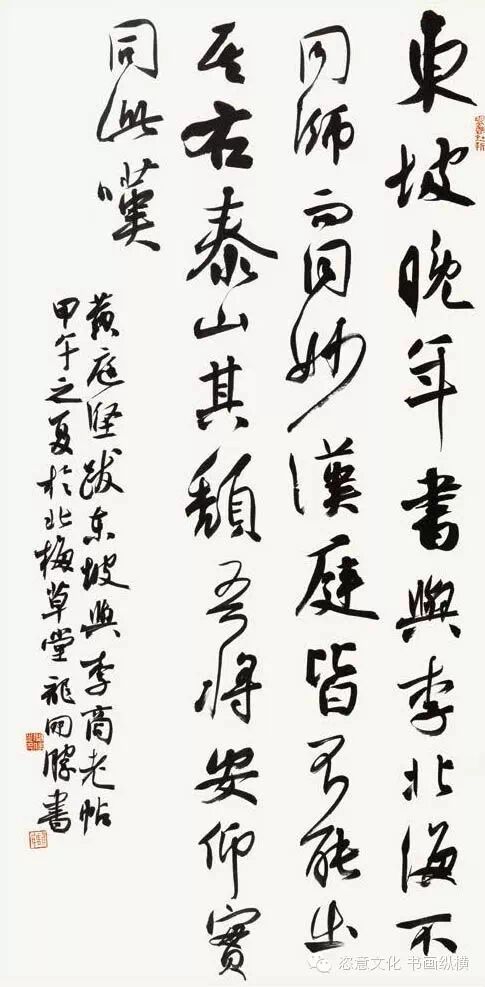 東坡晚年書與李北海不
同師而同妙漢庭皆能出
其右泰山其頽吾將安仰實
同此嘆
黃庭堅跋東坡與李商老帖
甲午之夏於北梅草堂龍開勝書
恣意文化 书画纵横